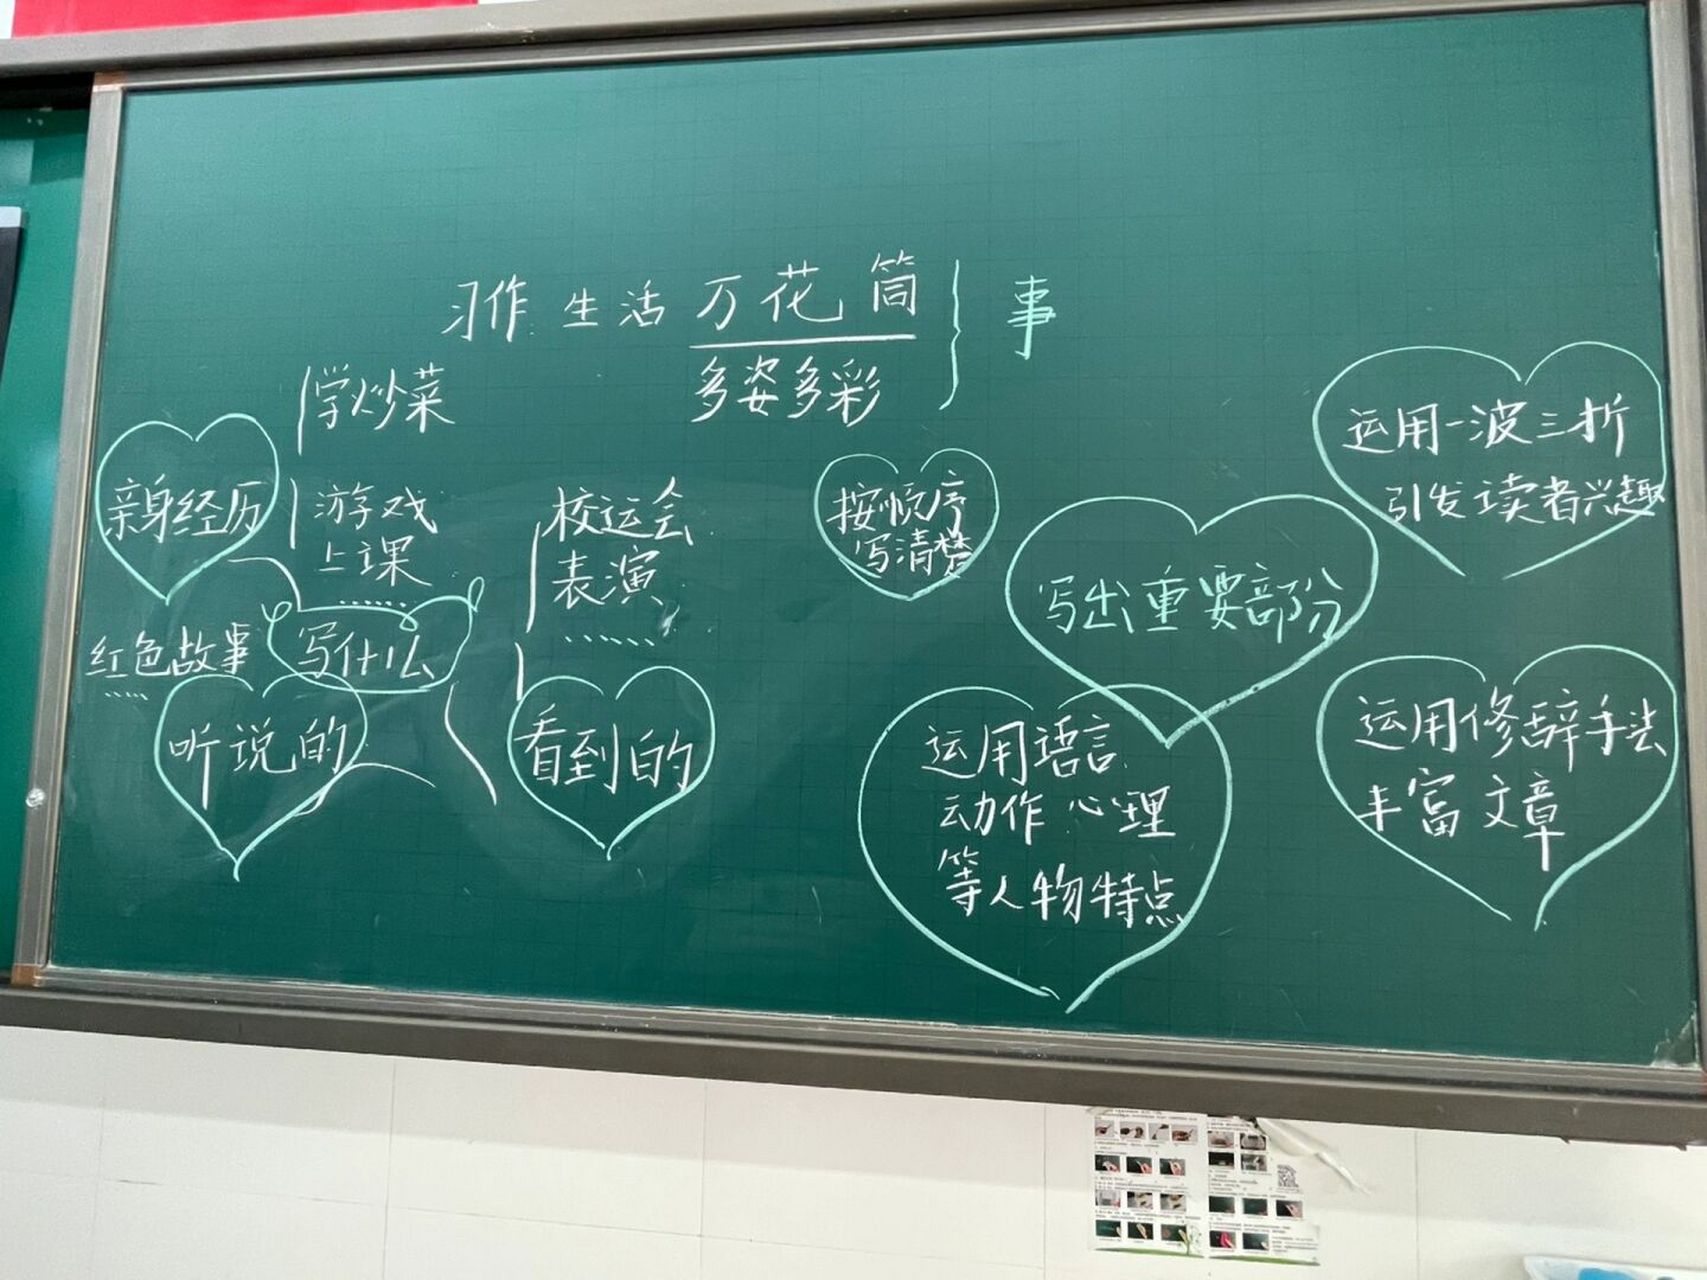 习作 生活 万花筒
多姿多彩
事
学炒菜
亲身经历
游戏
上课
……
写什么
红色故事
……
听说的
校运会
表演
……
看到的
按顺序
写清楚
写出重要部分
运用语言
动作 心理
等人物特点
运用一波三折
引发读者兴趣
运用修辞手法
丰富文章